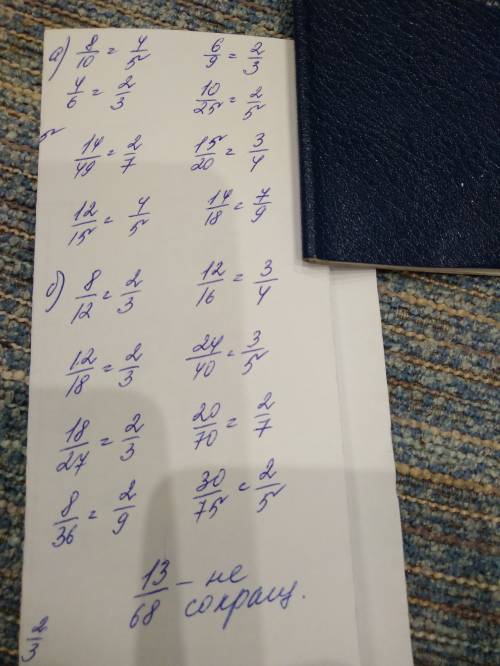 а) 8/10 = 4/5 6/9 = 2/3
4/6 = 2/3 10/25 = 2/5
14/49 = 2/7 15/20 = 3/4
12/15 = 4/5 14/18 = 7/9
б) 8/12 = 2/3 12/16 = 3/4
12/18 = 2/3 24/40 = 3/5
18/27 = 2/3 20/70 = 2/7
8/36 = 2/9 30/75 = 2/5
13/68 – не
сокращ.
2/3